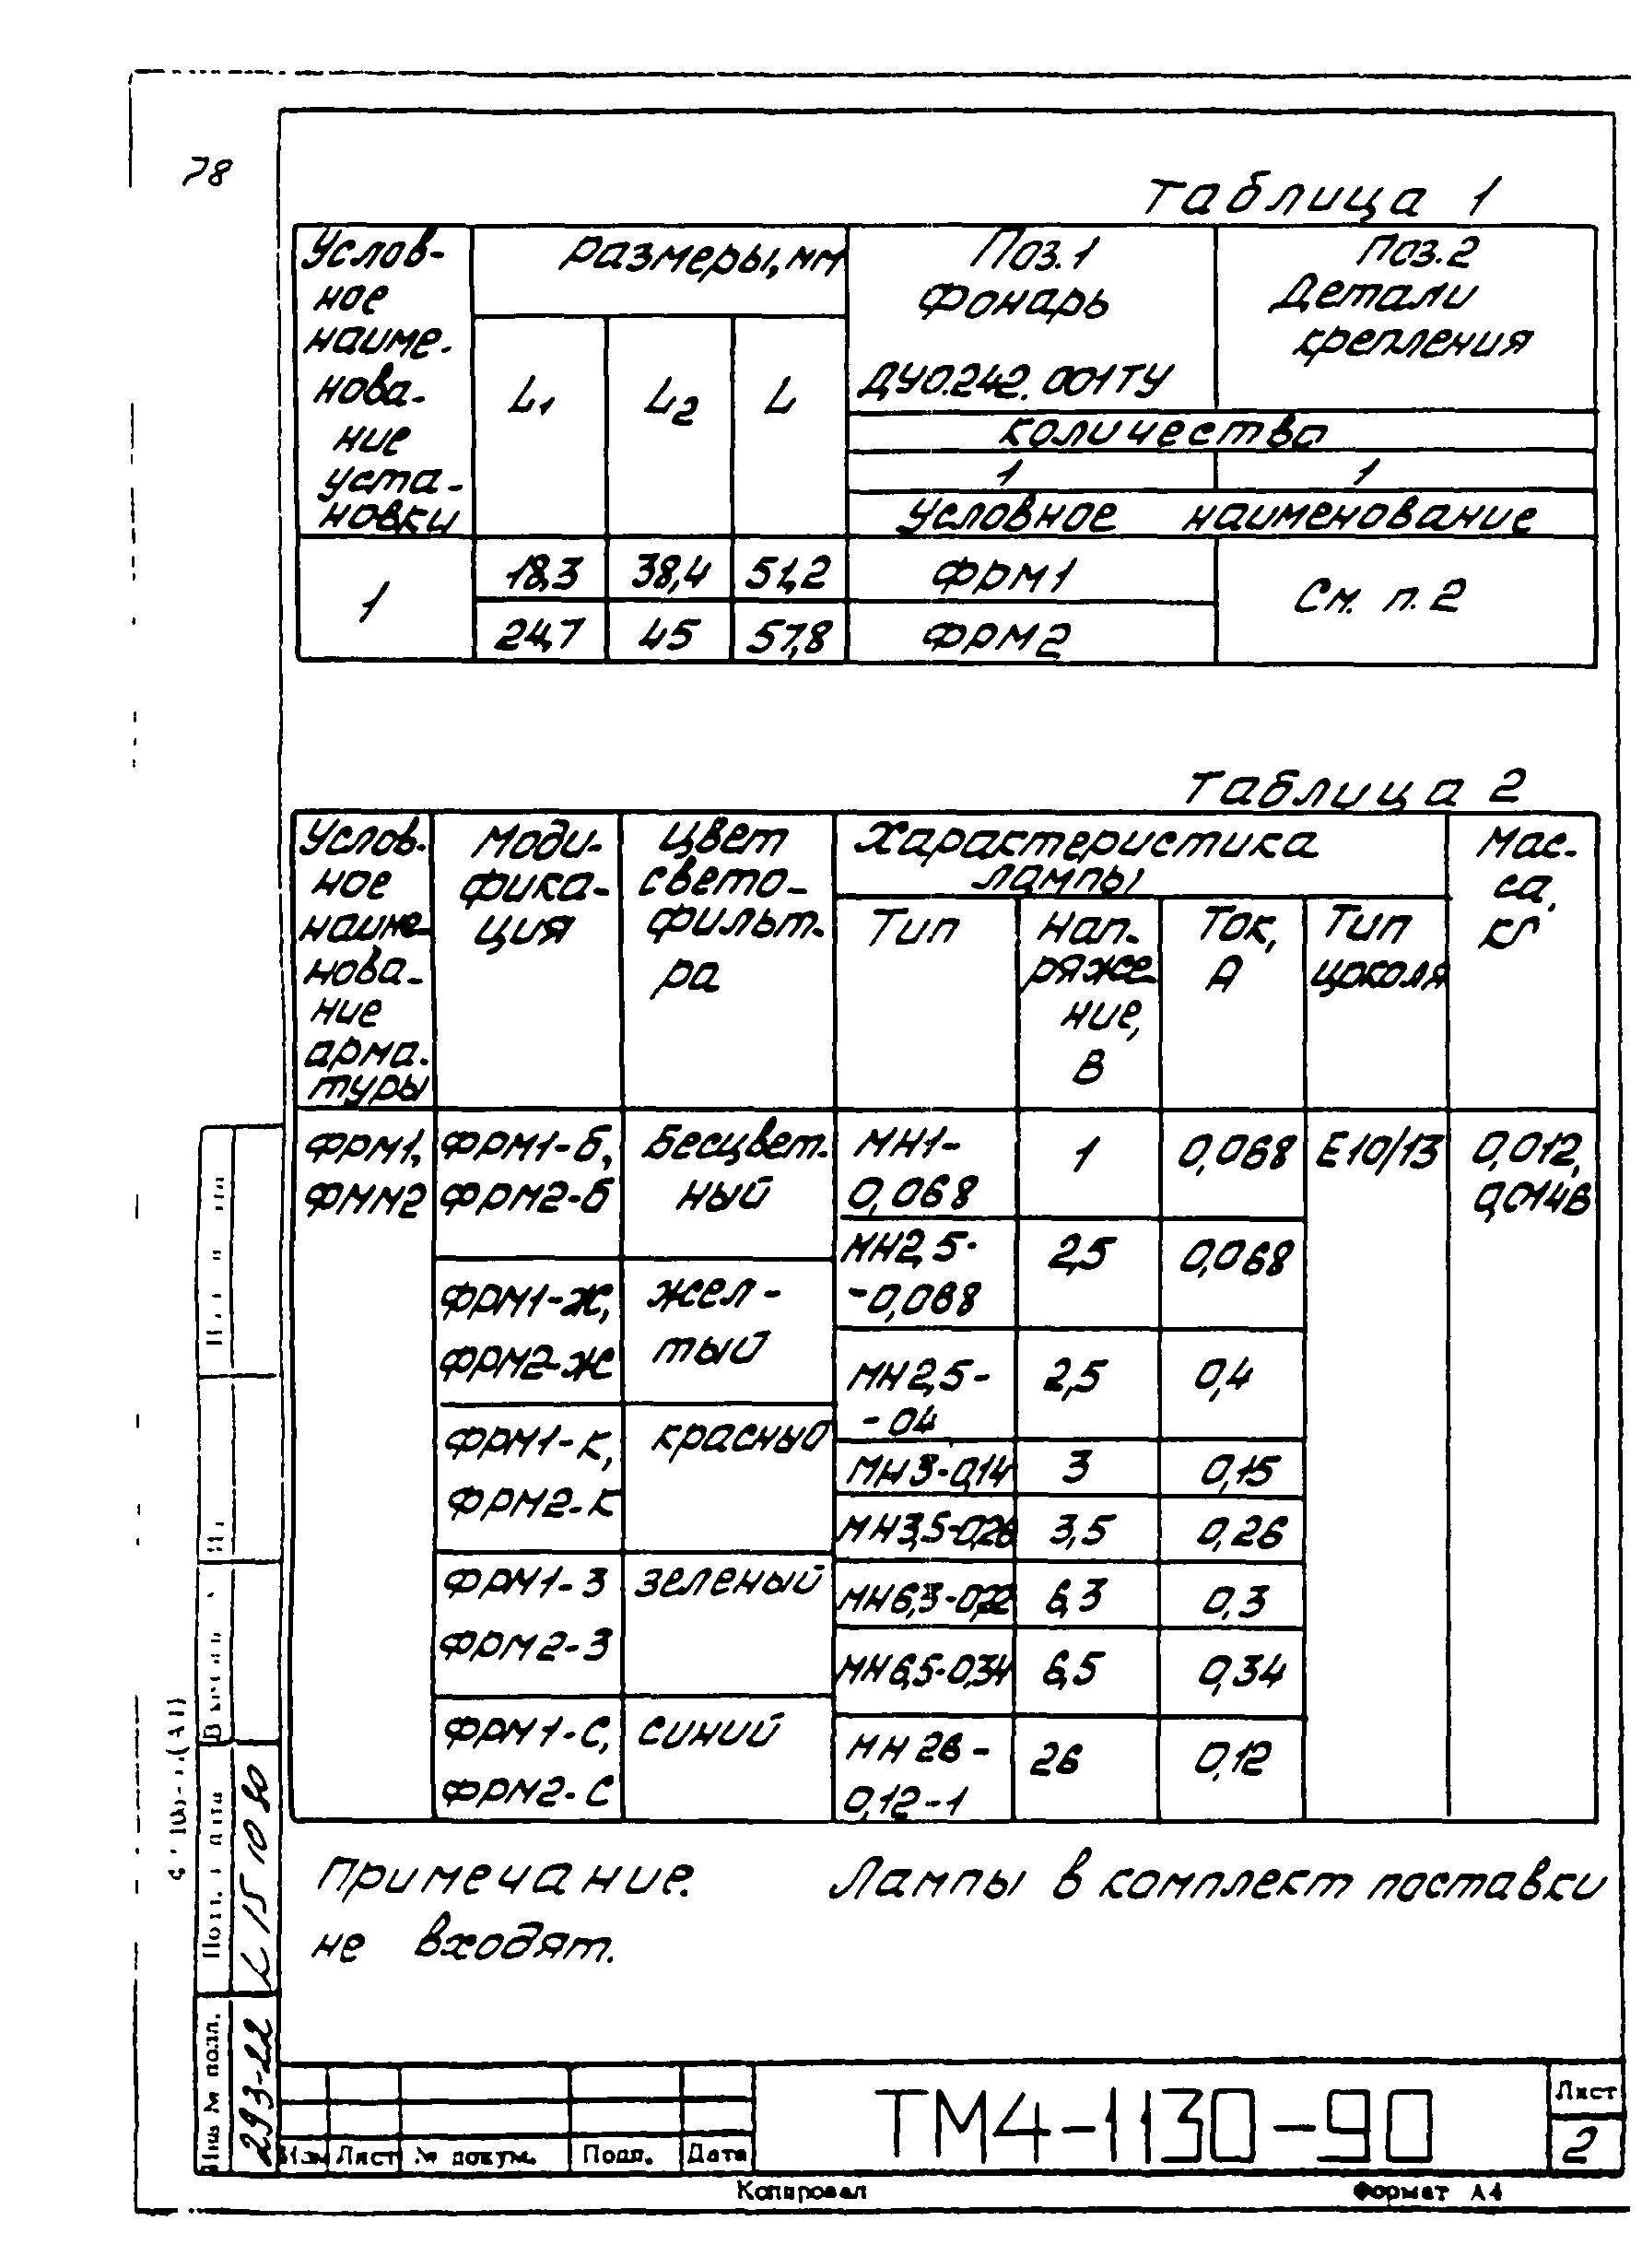 78
Таблица 1
Услов-
ное
наиме-
нова-
ние
уста-
новки
Размеры, мм
L1
L2
L
Поз.1
Фонарь
ДУ0.242.001ТУ
Поз.2
Детали
крепления
количество
1
1
Условное наименование
1
18,3
38,4
51,2
ФРМ1
См. п. 2
24,7
45
57,8
ФРМ2
Таблица 2
Услов-
ное
наиме-
нова-
ние
арма-
туры
Моди-
фика-
ция
Цвет
свето-
фильт-
ра
Характеристика
лампы
Тип
Нап-
ряже-
ние,
В
Ток,
А
Тип
цоколя
Мас-
са,
кг
ФРМ1,
ФММ2
ФРМ1-б,
ФРМ2-б
Бесцвет-
ный
МН1-
0,068
1
0,068
Е10/13
0,012,
МН2,5-
-0,068
2,5
0,068
ФРМ1-Ж,
ФРМ2-Ж
жел-
тый
МН2,5-
-04
2,5
0,4
ФРМ1-К,
ФРМ2-К
красный
МН3-0,14
3
0,15
МН3,5-0,26
3,5
0,26
ФРМ1-З
ФРМ2-З
зеленый
МН6,3-0,22
6,3
0,3
МН6,5-0,34
6,5
0,34
ФРМ1-С,
ФРМ2-С
синий
МН26-
0,12-1
26
0,12
Примечание. Лампы в комплект поставки
не входят.
Инв № подл.
293-22
15 10 90
Изм Лист № докум. Подп. Дата
ТМ4-1130-90
Лист
2
Копировал
Формат А4